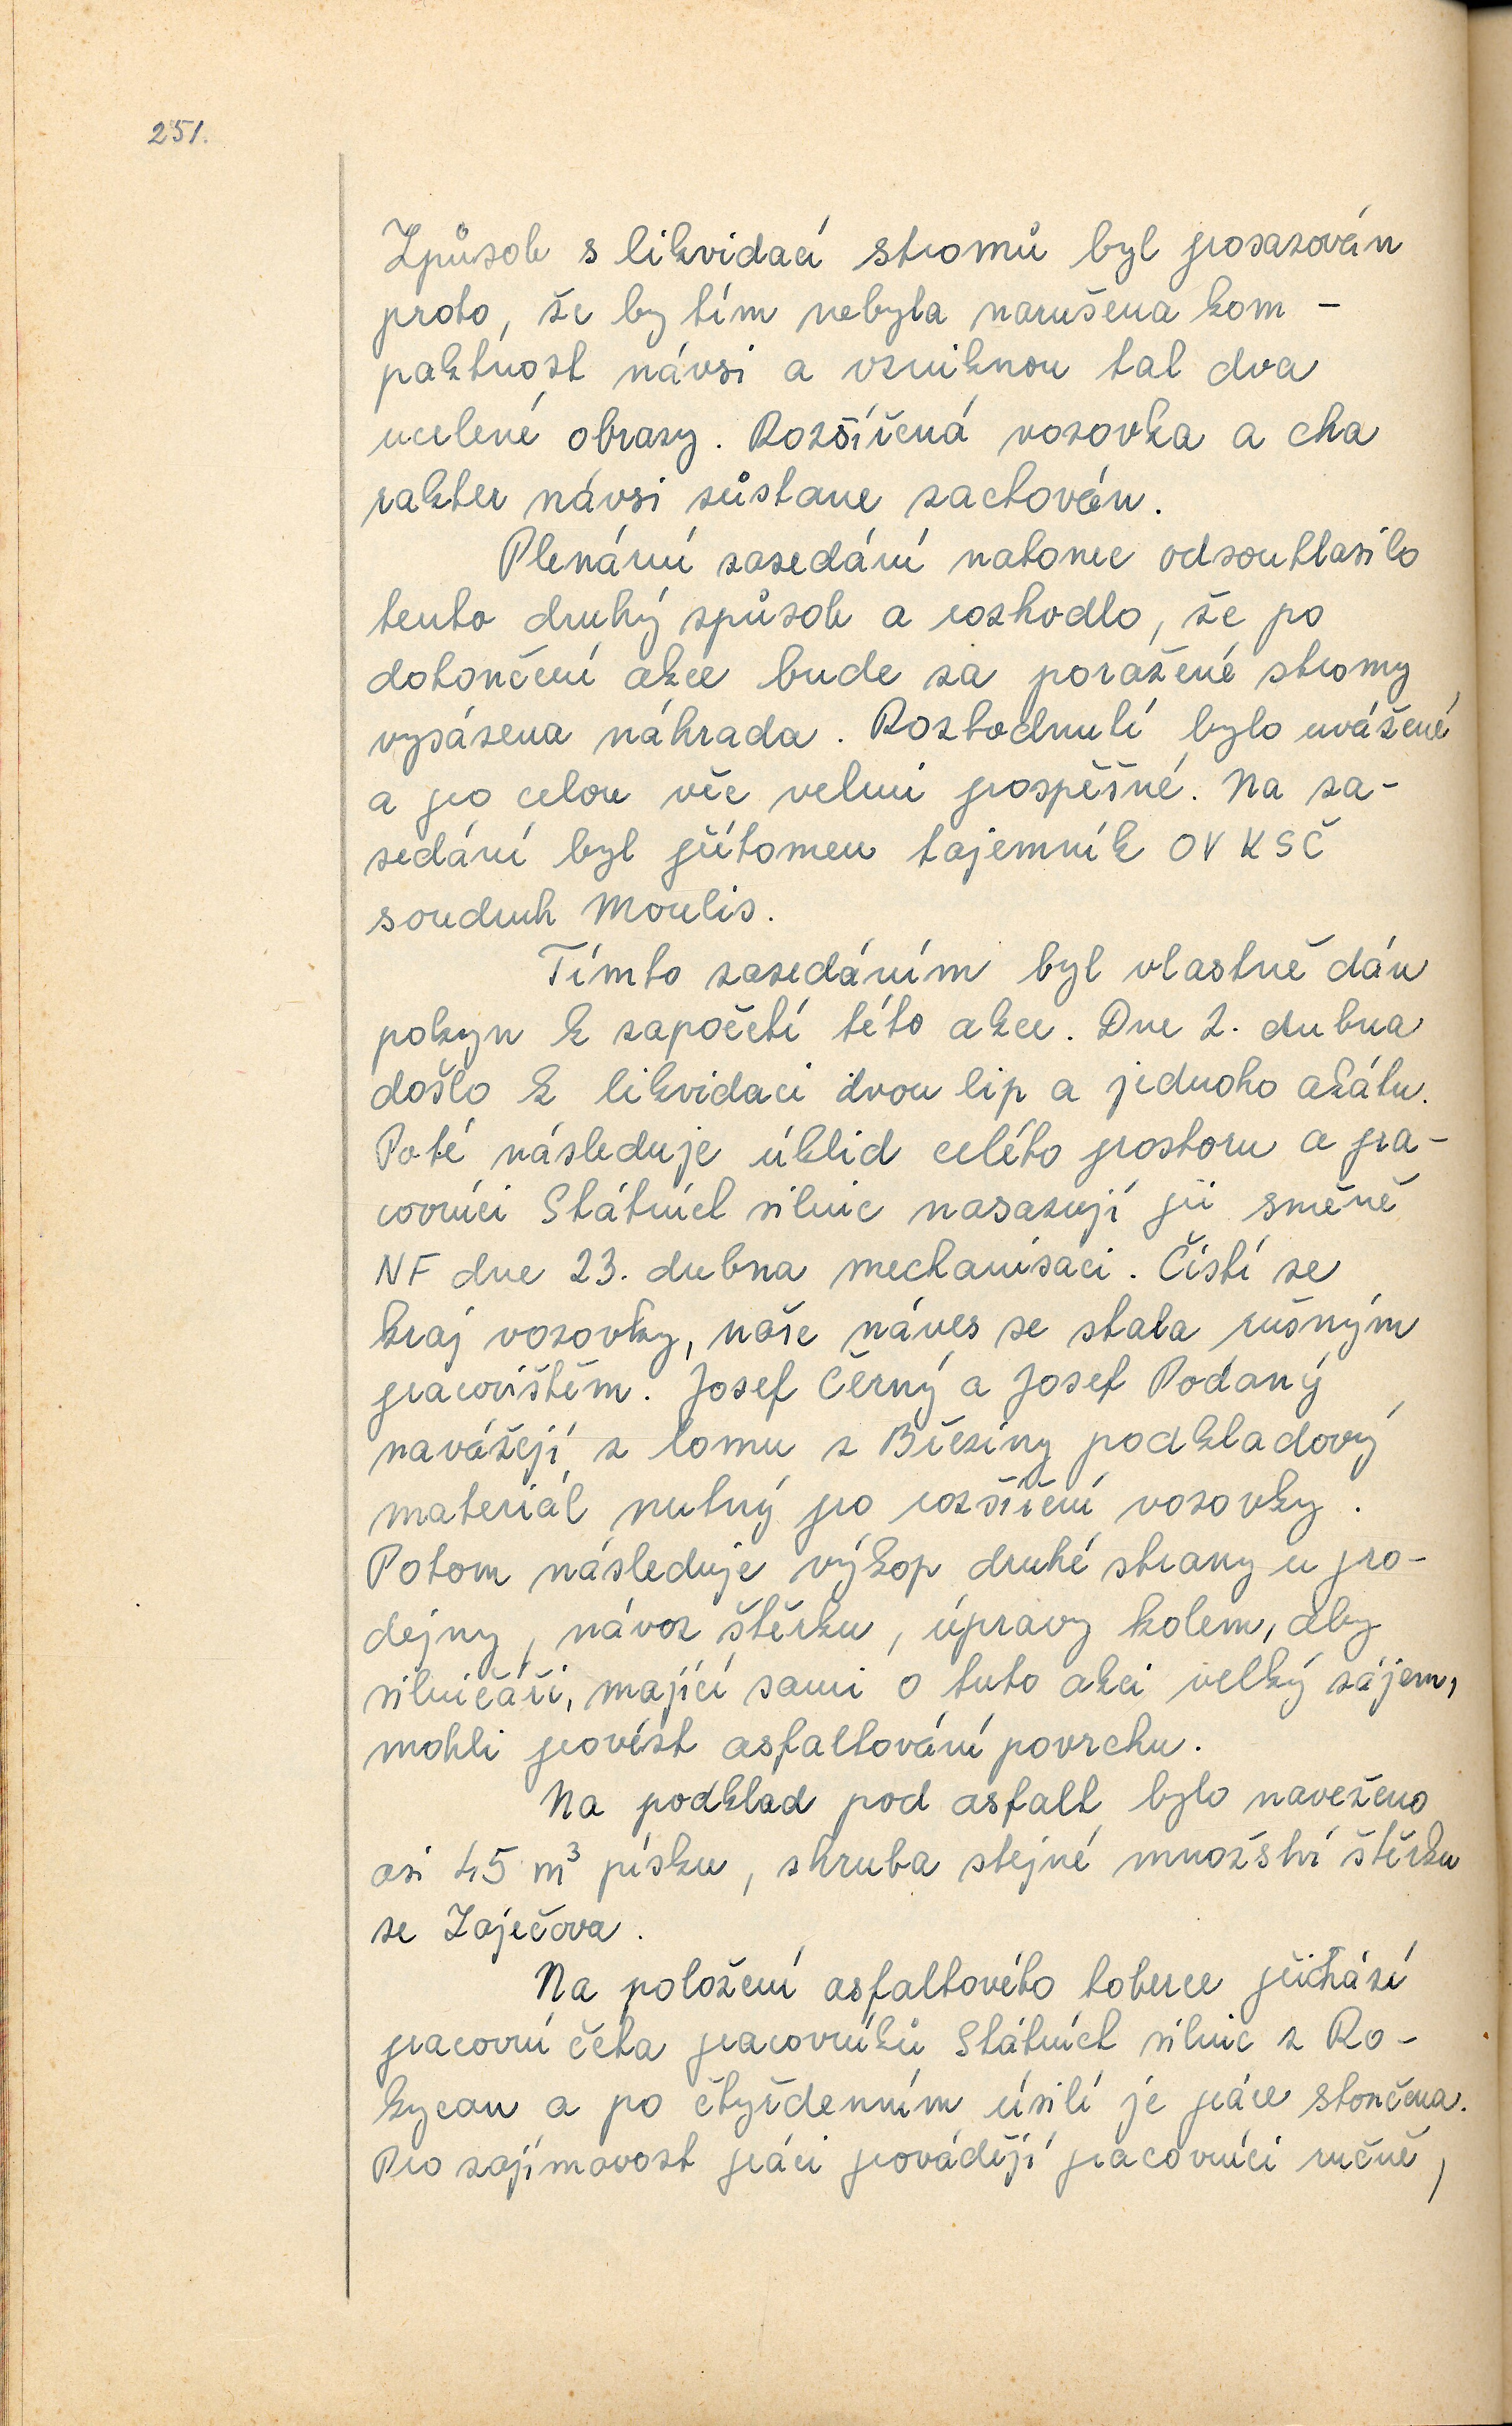 251.
Způsob s likvidací stromů byl prosazován
proto, že by tím nebyla narušena kom -
paktnost návsi a vzniknou tak dva
ucelené obrazy. Rozšířená vozovka a cha
rakter návsi zůstane zachován.
Plenární zasedání nakonec odsouhlasilo
tento druhý způsob a rozhodlo, že po
dokončení akce bude za poražené stromy
vysázena náhrada. Rozhodnutí bylo uvážené
a pro celou věc velmi prospěšné. Na za-
sedání byl přítomen tajemník OV KSČ
soudruh Moulis.
Tímto zasedáním byl vlastně dán
pokyn k započetí této akce. Dne 2. dubna
došlo k likvidaci dvou lip a jednoho akátu.
Poté následuje úklid celého prostoru a pra-
covníci Státních silnic nasazují při směně
NF dne 23. dubna mechanisaci. Čistí se
kraj vozovky, naše náves se stala rušným
pracovištěm. Josef Černý a Josef Podaný
navážejí z lomu z Březiny podkladový
materiál nutný pro rozšíření vozovky.
Potom následuje výkop druhé strany u pro-
dejny, návoz štěrku, úpravy kolem, aby
silničáři, mající sami o tuto akci velký zájem,
mohli provést asfaltování povrchu.
Na podklad pod asfalt bylo naveženo
asi 45 m³ písku, zhruba stejné množství štěrku
ze Zaječova.
Na položení asfaltového koberce přichází
pracovní četa pracovníků Státních silnic z Ro-
kycan a po čtyřdenním úsilí je práce skončena.
Pro zajímavost práci provádějí pracovníci ručně,